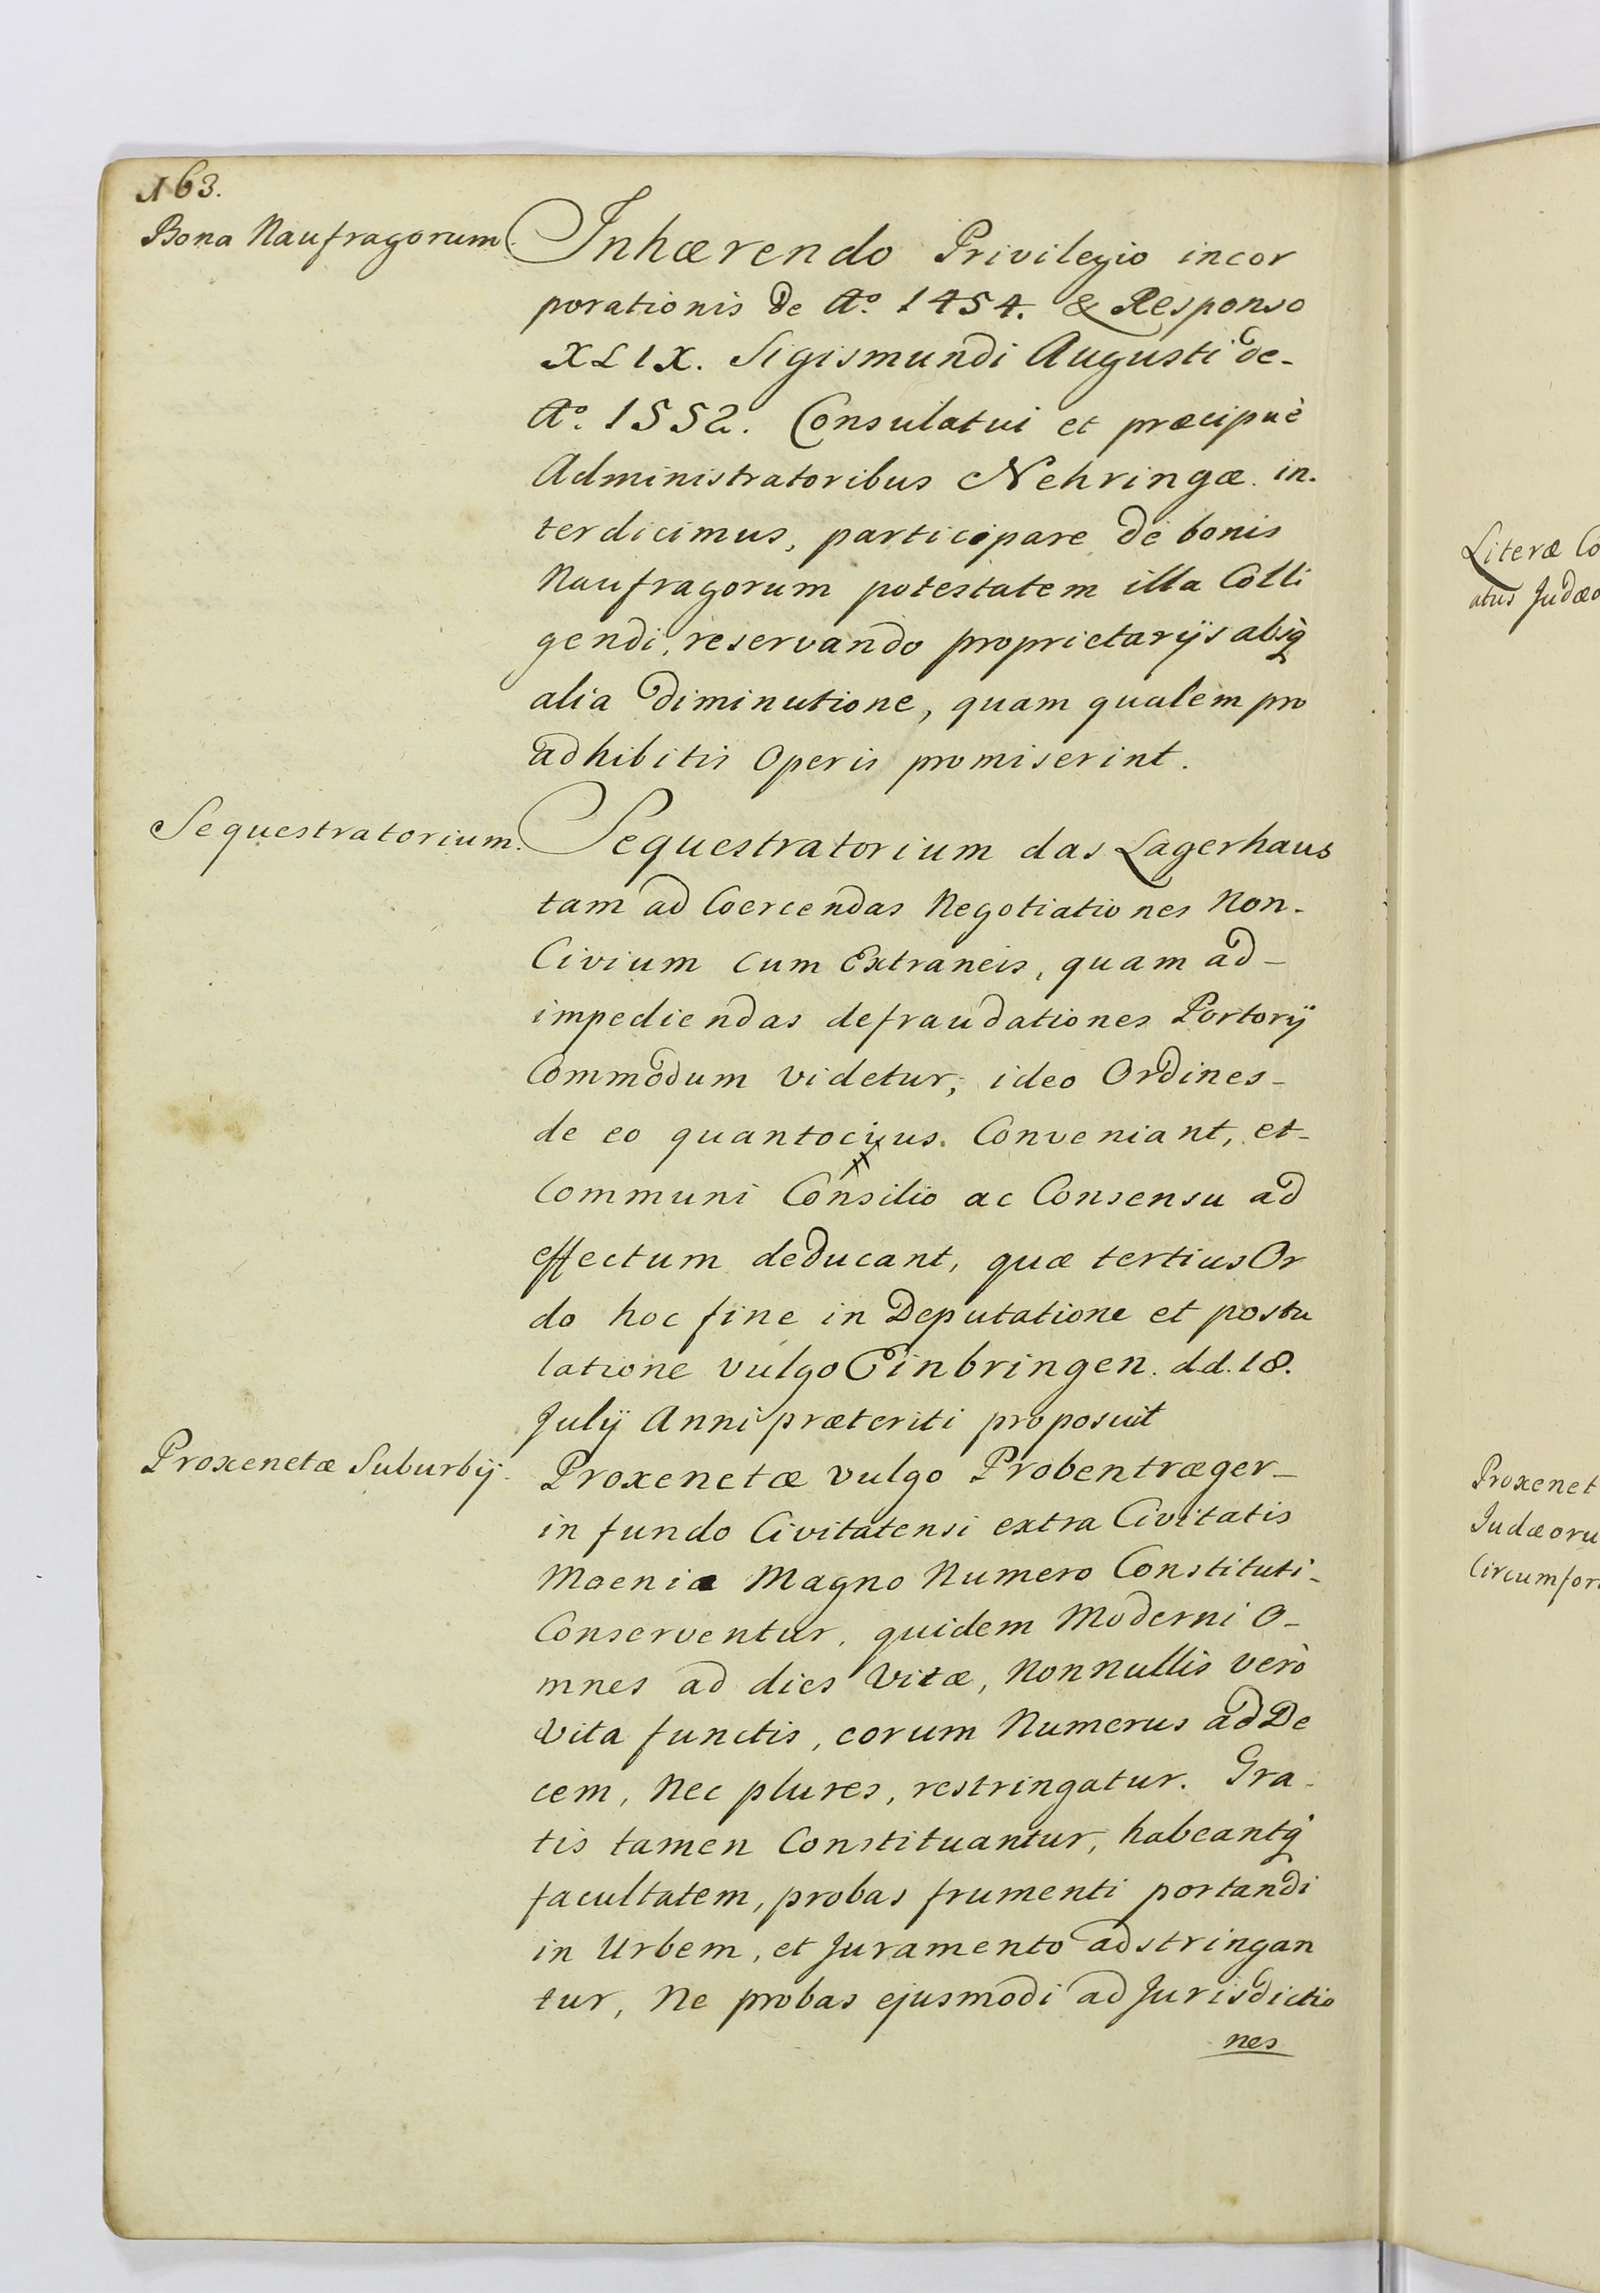 163.
Bona Naufragorum.
Inhærendo Privilegio incor
porationis de Aº. 1454. & Responso
XLIX. Sigismundi Augusti de-
Aº. 1552. Consulatui et præcipuè
Administratoribus Nehringæ in-
terdicimus, participare de bonis
Naufragorum potestatem illa Colli
gendi, reservando proprietarÿs absq
alia diminutione, quam qualem pro
adhibitis Operis promiserint.
Sequestratorium.
Sequestratorium das Lagerhaus
tam ad Coercendas Negotiationes Non-
Civium cum Extraneis, quam ad-
impediendas defraudationes Portorÿ
Commodum videtur, ideo Ordines-
de eo quantocÿus. Conveniant, et-
Communi Consilio ac Consensu ad
effectum deducant, quæ tertius Or
do hoc fine in Deputatione et postu
latione vulgo Einbringen. d.d. 18.
Julÿ Anni præteriti proposuit
Proxenetæ Suburbÿ.
Proxenetæ vulgo Probentræger-
in fundo Civitatensi extra Civitatis
Moenia Magno Numero Constituti-
Conserventur, quidem Moderni O-
mnes ad dies Vitæ, Nonnullis verò
Vita functis, eorum Numerus ad De
cem, Nec plures, restringatur. Gra-
tis tamen Constituantur, habeantq
facultatem, probas frumenti portandi
in Urbem, et Juramento adstringan
tur, Ne probas ejusmodi ad Jurisdictio
nes
Literæ Co
atus Judæo
Proxenet
Judæoru
Circumfor